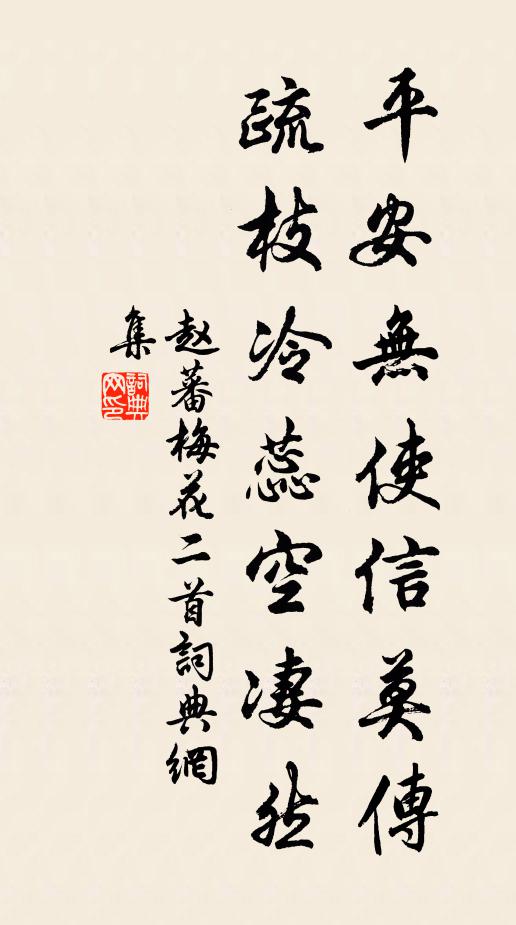 平安無使信莫傳
疏枝冷蕊空淒然
赵蕃梅花二首詞典網
集
詞典
网印